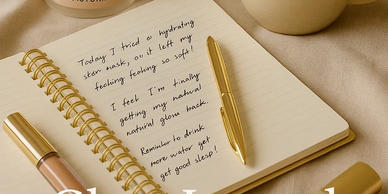 Today I tried a hydrating
mask, it left my
feeling so soft!
I feel I'm finally
getting my natural
natural glow back.
Reminder to drink
more water get
get good sleep!